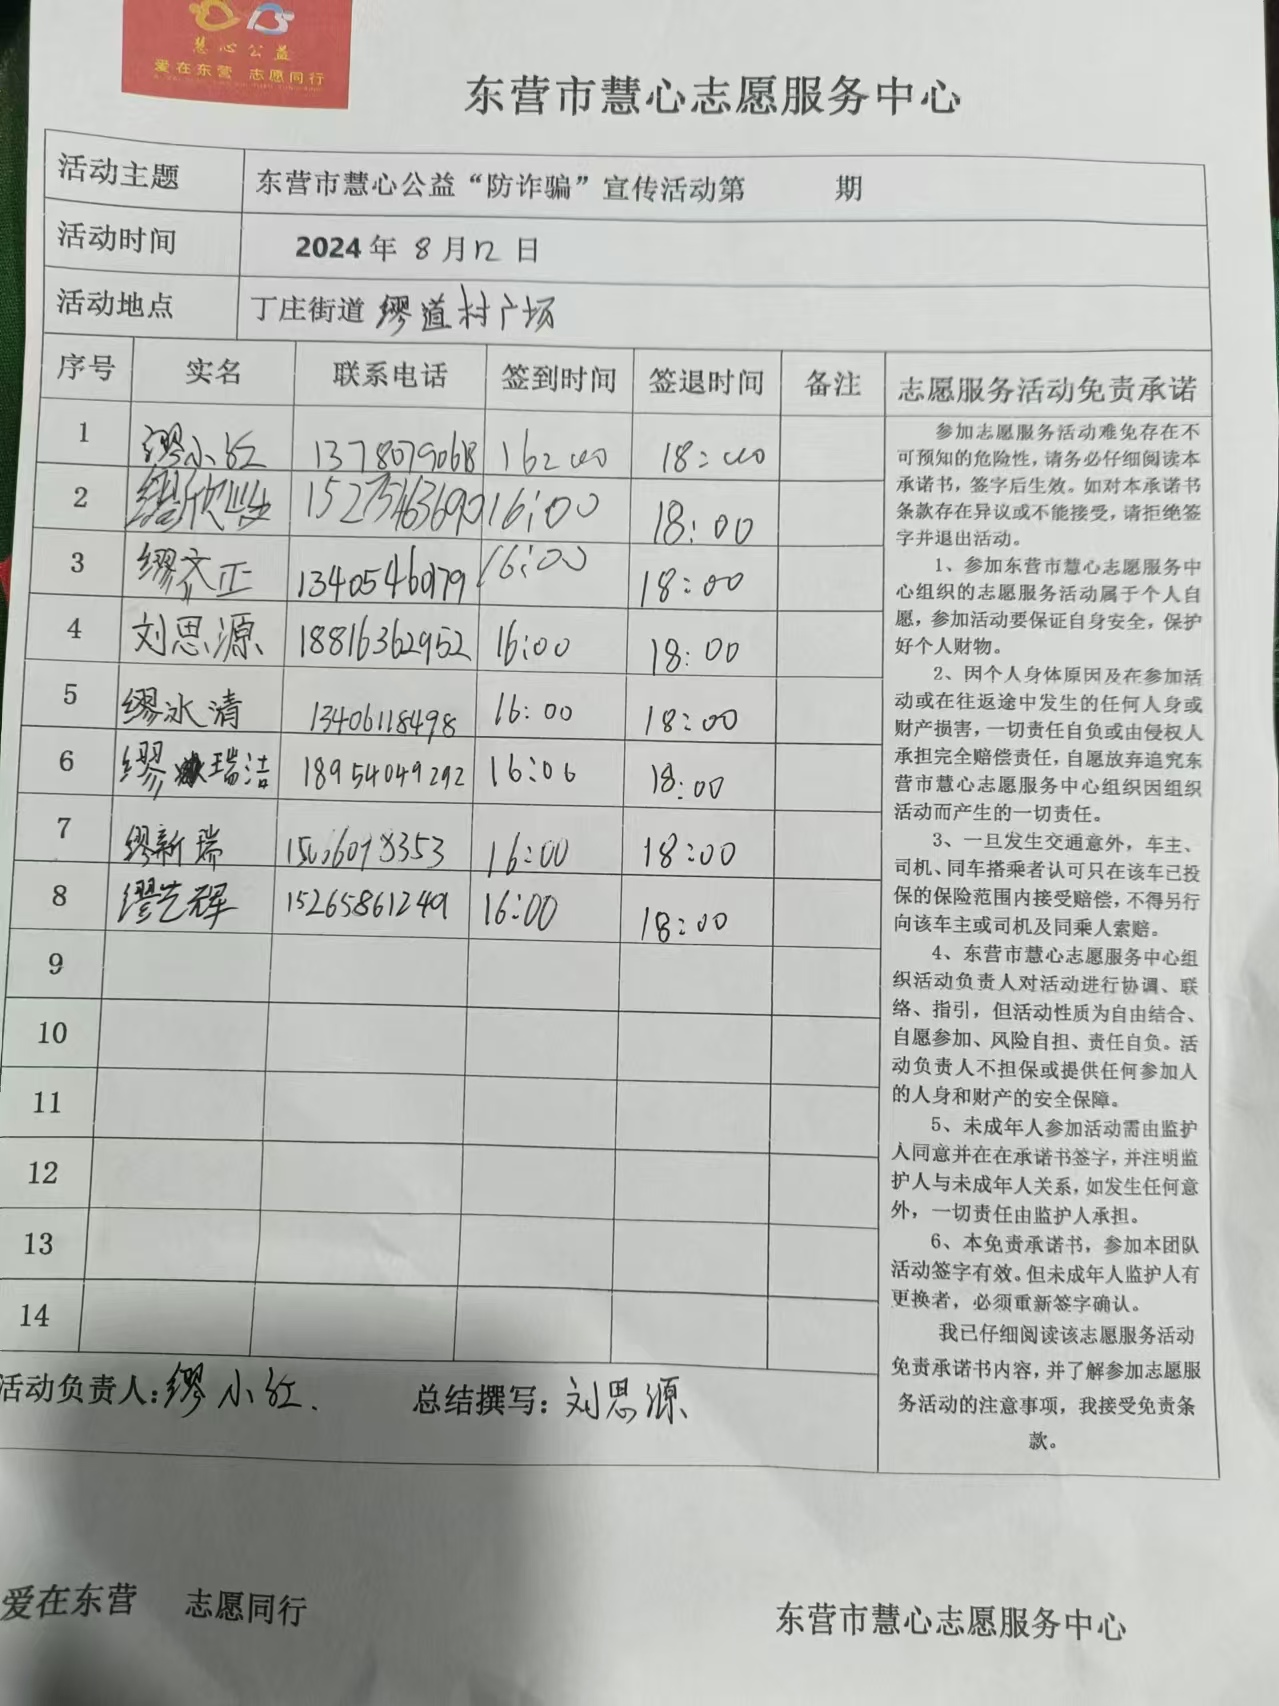 慧心公益
爱在东营 志愿同行
东营市慧心志愿服务中心
活动主题 东营市慧心公益“防诈骗”宣传活动第 期
活动时间 2024年8月12日
活动地点 丁庄街道缪道村广场
序号 实名 联系电话 签到时间 签退时间 备注
1 缪小红 13780790618 16:00 18:00
2 缪欣 15275463690 16:00 18:00
3 缪文正 13405460179 16:00 18:00
4 刘思源 18816362952 16:00 18:00
5 缪冰清 13406118498 16:00 18:00
6 缪瑞洁 18954049292 16:06 18:00
7 缪新瑞 16:00 18:00
8 缪艺辉 15265861249 16:00 18:00
9
10
11
12
13
14
活动负责人:缪小红. 总结撰写:刘思源
志愿服务活动免责承诺
参加志愿服务活动难免存在不
可预知的危险性,请务必仔细阅读本
承诺书,签字后生效。如对本承诺书
条款存在异议或不能接受,请拒绝签
字并退出活动。
1、参加东营市慧心志愿服务中
心组织的志愿服务活动属于个人自
愿,参加活动要保证自身安全,保护
好个人财物。
2、因个人身体原因及在参加活
动或在往返途中发生的任何人身或
财产损害,一切责任自负或由侵权人
承担完全赔偿责任,自愿放弃追究东
营市慧心志愿服务中心组织因组织
活动而产生的一切责任。
3、一旦发生交通意外,车主、
司机、同车搭乘者认可只在该车已投
保的保险范围内接受赔偿,不得另行
向该车主或司机及同乘人索赔。
4、东营市慧心志愿服务中心组
织活动负责人对活动进行协调、联
络、指引,但活动性质为自由结合、
自愿参加、风险自担、责任自负。活
动负责人不担保或提供任何参加人
的人身和财产的安全保障。
5、未成年人参加活动需由监护
人同意并在在承诺书签字,并注明监
护人与未成年人关系,如发生任何意
外,一切责任由监护人承担。
6、本免责承诺书,参加本团队
活动签字有效。但未成年人监护人有
更换者,必须重新签字确认。
我已仔细阅读该志愿服务活动
免责承诺书内容,并了解参加志愿服
务活动的注意事项,我接受免责条
款。
爱在东营 志愿同行 东营市慧心志愿服务中心